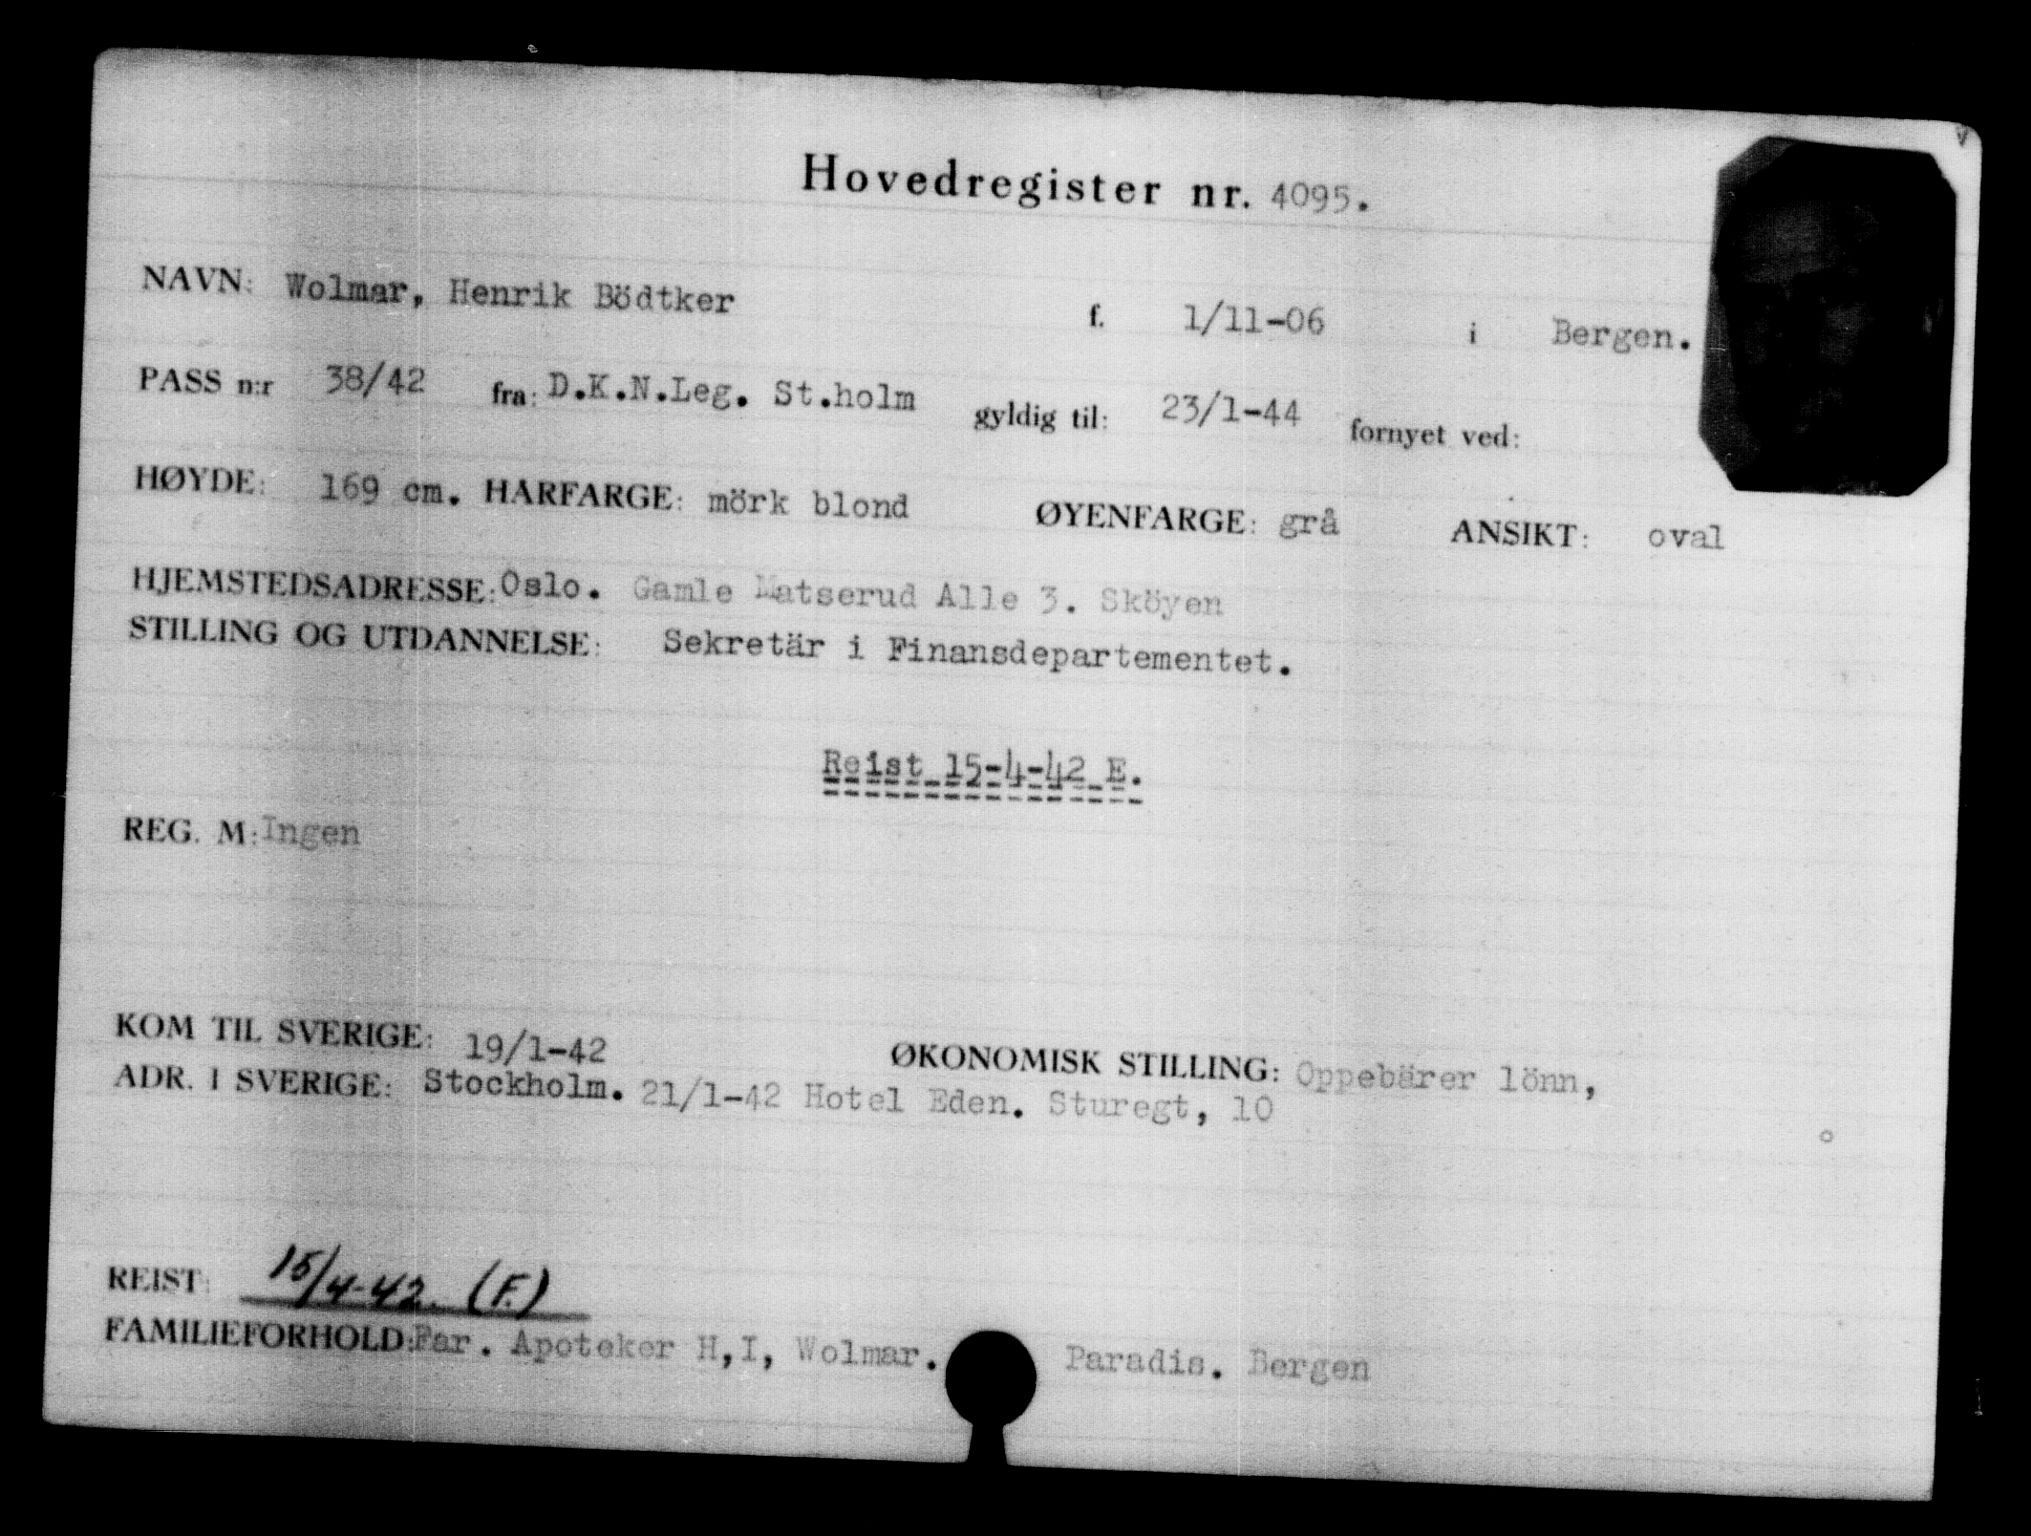 Hovedregister nr. 4095.
NAVN: Wolmar, Henrik Bödtker f. 1/11-06 i Bergen.
PASS n:r 38/42 fra: D.K.N.Leg. St.holm gyldig til: 23/1-44 fornyet ved:
HØYDE: 169 cm. HARFARGE: mörk blond ØYENFARGE: grå ANSIKT: oval
HJEMSTEDSADRESSE: Oslo. Gamle Matserud Alle 3. Sköyen
STILLING OG UTDANNELSE: Sekretär i Finansdepartementet.
Reist 15-4-42 E.
REG. M: Ingen
KOM TIL SVERIGE: 19/1-42 ØKONOMISK STILLING: Oppebärer lönn,
ADR. I SVERIGE: Stockholm. 21/1-42 Hotel Eden. Sturegt, 10
REIST: 15/4-42. (F.)
FAMILIEFORHOLD: Far. Apoteker H,I, Wolmar. Paradis. Bergen